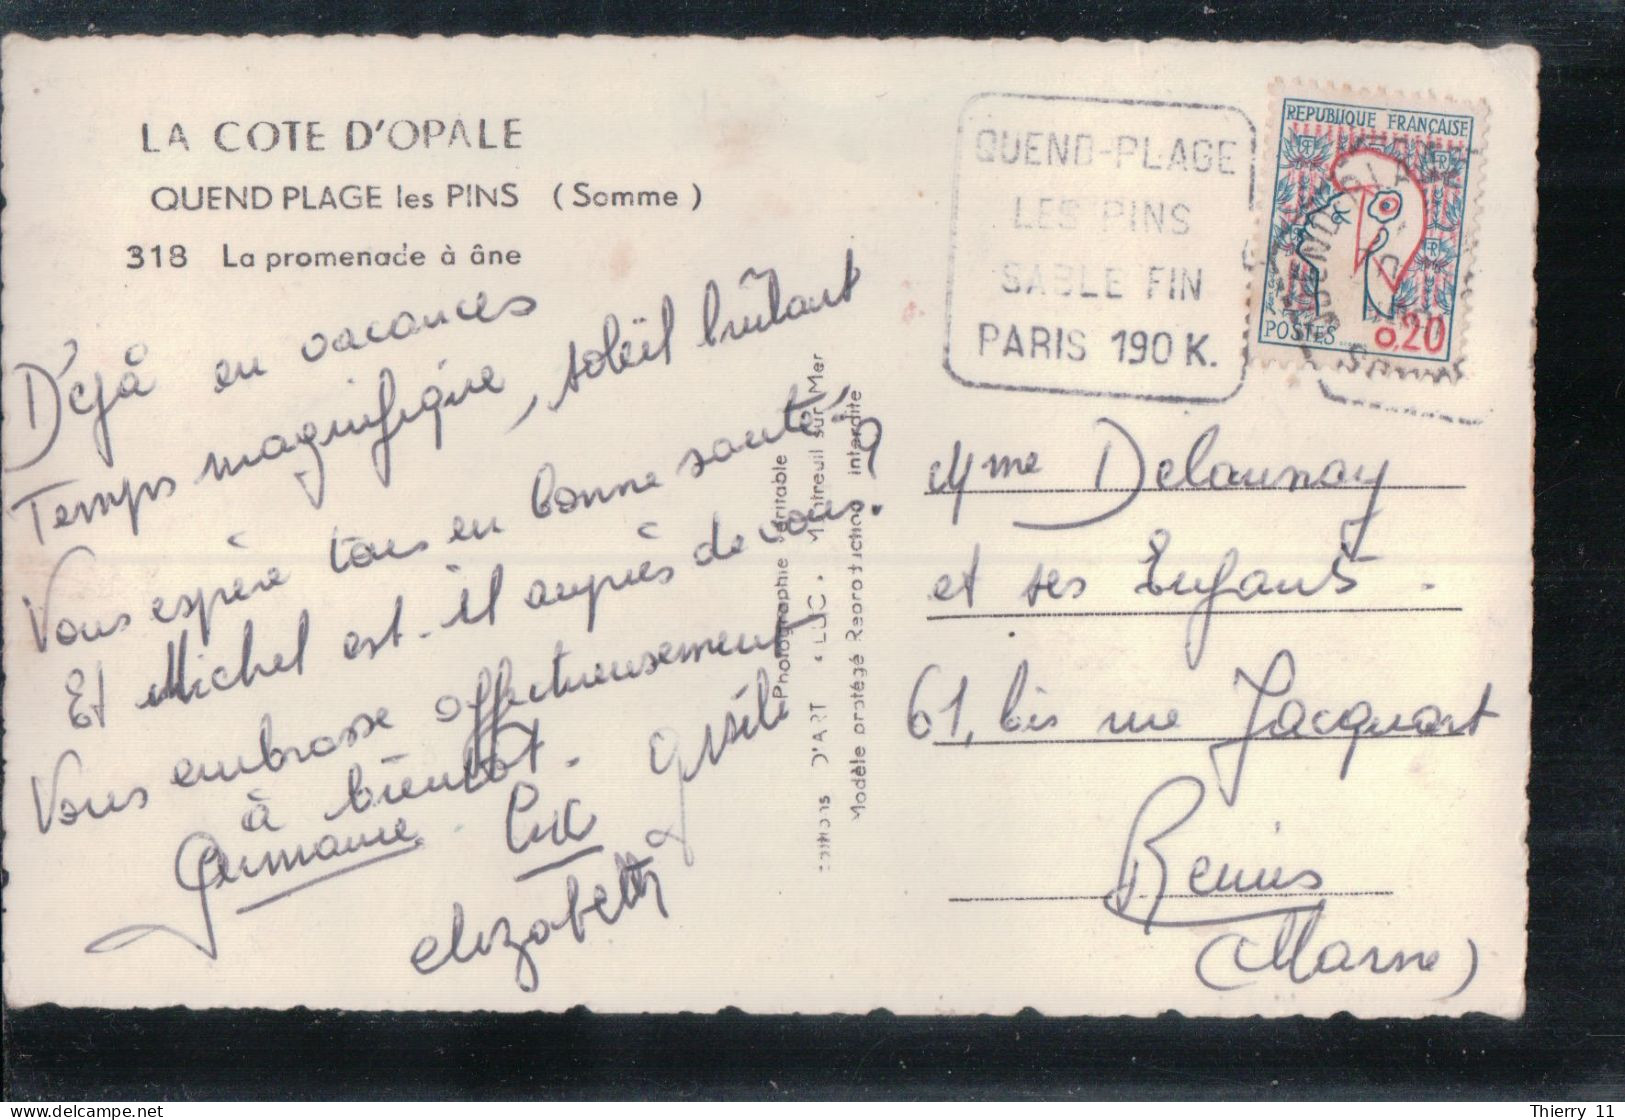 LA COTE D'OPALE
QUEND PLAGE les PINS (Somme)
318 La promenade à âne
Déjà en vacances
Temps magnifique, soleil brûlant
Vous espère tous en bonne santé
Et Michel est-il auprès de vous ?
Vous embrasse affectueusement
à bientôt.
Germaine Luc Gisèle
elizabeth
Photographie Véritable
EDITIONS D'ART "LUC" Montreuil sur Mer
Modèle protégé Reproduction interdite
QUEND-PLAGE
LES PINS
SABLE FIN
PARIS 190 K.
REPUBLIQUE FRANÇAISE
POSTES 0,20
QUEND PLAGE
Somme
Mme Delaunay
et ses Enfants.
61, bis rue Jacquart
Reims
(Marne)
Thierry 11